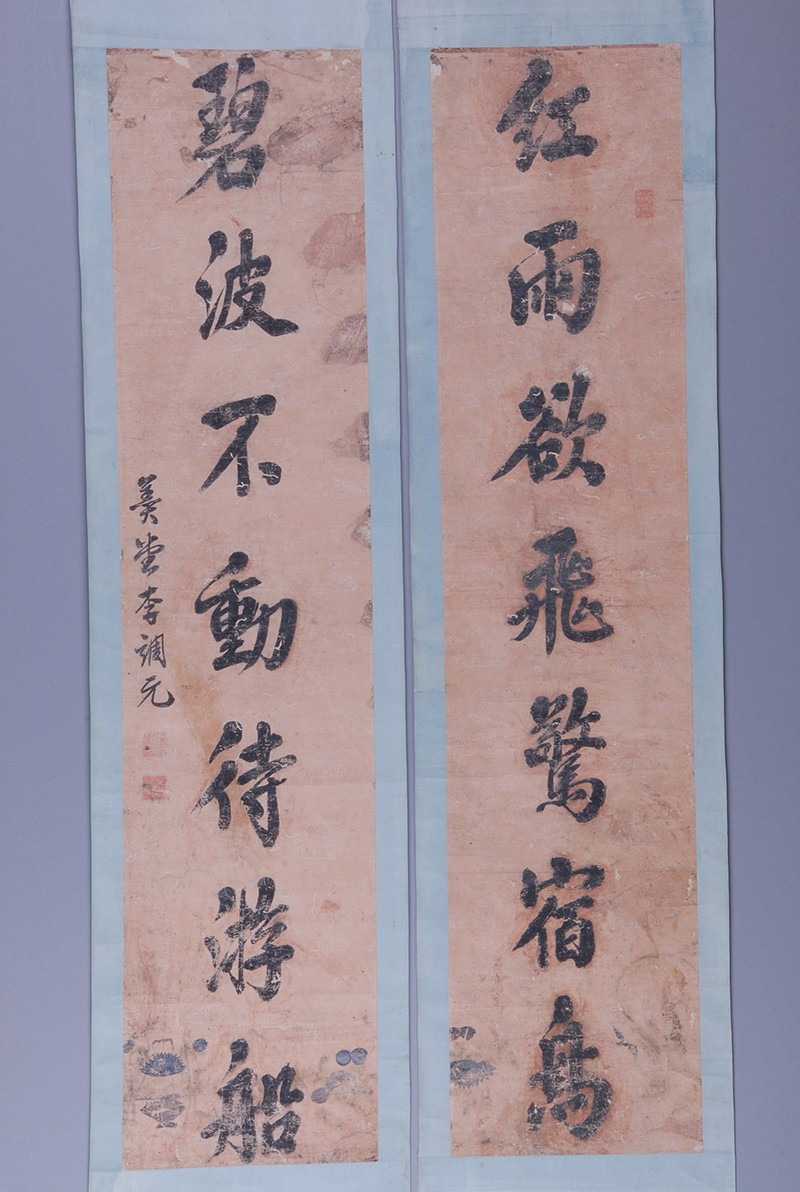 红雨欲飛驚宿鳥
碧波不動待游船
羹堂李調元